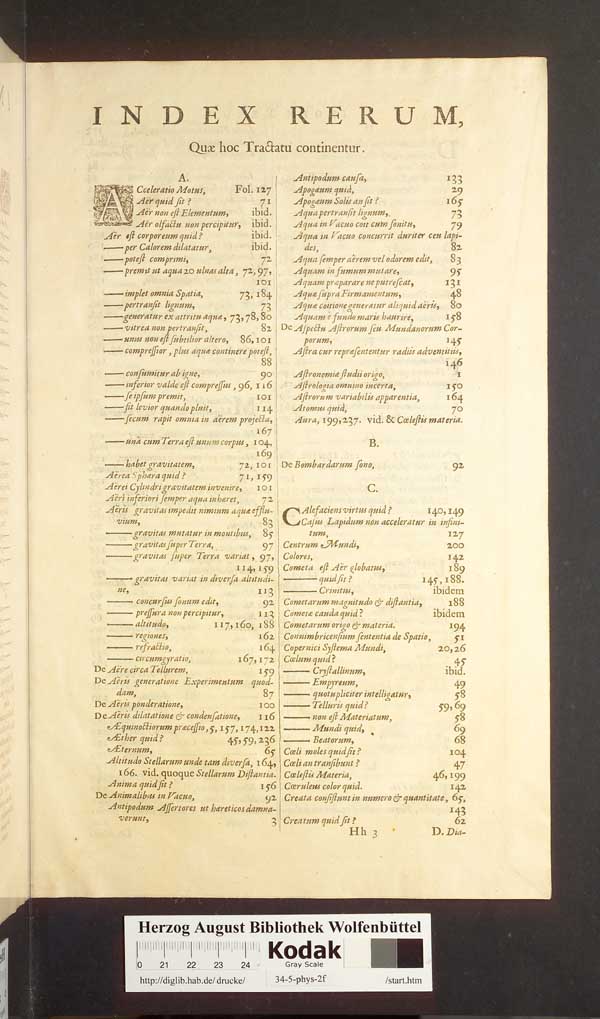 INDEX RERUM,
Quæ hoc Tractatu continentur.
A.
ACceleratio Motus, Fol. 127
Aër quid sit? 71
Aër non est Elementum, ibid.
Aër olfactu non percipitur, ibid.
Aër est corporeum quid? ibid.
—— per Calorem dilatatur, ibid.
—— potest comprimi, 72
—— premit ut aqua 20 ulnas alta, 72, 97,
101
—— implet omnia Spatia, 73, 184
—— pertransit lignum, 73
—— generatur ex attritu aquæ, 73, 78, 80
—— vitrea non pertransit, 82
—— unus non est subtilior altero, 86, 101
—— compressior, plus aquæ continere potest,
88
—— consumitur ab igne, 90
—— inferior valde est compressus, 96, 116
—— se ipsum premit, 101
—— fit levior quando pluit, 114
—— secum rapit omnia in aërem projecta,
167
—— unà cum Terra est unum corpus, 104,
169
—— habet gravitatem, 72, 101
Aërea Sphæra quid? 71, 159
Aërei Cylindri gravitatem invenire, 101
Aëri inferiori semper aqua inhæret, 72
Aëris gravitas impedit nimium aquæ efflu-
vium, 83
—— gravitas mutatur in montibus, 85
—— gravitas super Terra, 97
—— gravitas super Terra variat, 97,
114, 159
—— gravitas variat in diversa altitudi-
ne, 113
—— concursus sonum edit, 92
—— pressura non percipitur, 113
—— altitudo, 117, 160, 188
—— regiones, 162
—— refractio, 164
—— circumgyratio, 167, 172
De Aëre circa Tellurem, 159
De Aëris generatione Experimentum quod-
dam, 87
De Aëris ponderatione, 100
De Aëris dilatatione & condensatione, 116
Æquinoctiorum præcessio, 5, 157, 174, 122
Æther quid? 45, 59, 236
Æternum, 65
Altitudo Stellarum unde tam diversa, 164,
166. vid. quoque Stellarum Distantia.
Anima quid sit? 156
De Animalibus in Vacuo, 92
Antipodum Assertores ut hæreticos damna-
verunt, 3
Antipodum causa, 133
Apogæum quid, 29
Apogæum Solis an sit? 165
Aqua pertransit lignum, 73
Aqua in Vacuo coit cum sonitu, 79
Aqua in Vacuo concurrit duriter ceu lapi-
des, 82
Aqua semper aërem vel odorem edit, 83
Aquam in fumum mutare, 95
Aquam præparare ne putrescat, 131
Aquæ supra Firmamentum, 48
Aquæ coitione generatur aliquid aëris, 80
Aquam è fundo maris haurire, 158
De Aspectu Astrorum seu Mundanorum Cor-
porum, 145
Astra cur repræsententur radiis adventitiis,
146
Astronomiæ studii origo, 1
Astrologia omnino incerta, 150
Astrorum variabilis apparentia, 164
Atomus quid, 70
Aura, 199, 237. vid. & Cœlestis materia.
B.
De Bombardarum sono, 92
C.
CAlefaciens virtus quid? 140, 149
Casus Lapidum non acceleratur in infini-
tum, 127
Centrum Mundi, 200
Colores, 142
Cometa est Aër globatus, 189
—— quid sit? 145, 188.
—— Crinitus, ibidem
Cometarum magnitudo & distantia, 188
Cometæ cauda quid? ibidem
Cometarum origo & materia. 194
Connimbricensium sententia de Spatio, 51
Copernici Systema Mundi, 20, 26
Cœlum quid? 45
—— Crystallinum, ibid.
—— Empyreum, 49
—— quotupliciter intelligatur, 58
—— Telluris quid? 59, 69
—— non est Materiatum, 58
—— Mundi quid, 69
—— Beatorum, 68
Cœli moles quid sit? 104
Cœli an transibunt? 47
Cœlestis Materia, 46, 199
Cœruleus color quid. 142
Creata consistunt in numero & quantitate, 65,
143
Creatum quid sit? 62
Hh 3 D. Dia-
Herzog August Bibliothek Wolfenbüttel
0 21 22 23 24
Kodak
Gray Scale
http://diglib.hab.de/drucke/ 34-5-phys-2f /start.htm